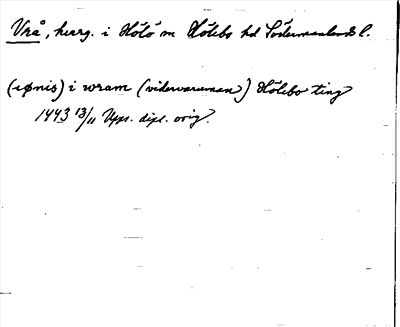 Vrå, herrg. i Hölö sn Hölebo hd Södermanlands l.
(iønis) i wram (vidervaruman) Hölebo ting
1443 13/11 Upps. dipl. orig.